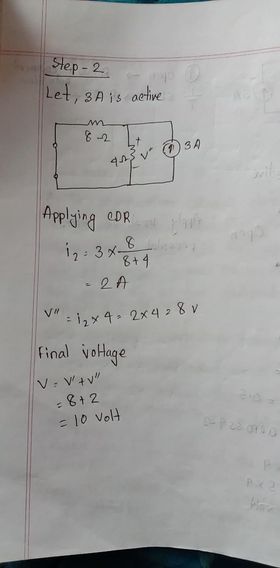 Step-2
Let, 3A is active
8Ω
+
4Ω V" 3A
Applying CDR
i₂ = 3 × 8/(8+4)
= 2 A
V" = i₂ × 4 = 2×4 = 8 V
Final voltage
V = V' + V"
= 8+2
= 10 Volt